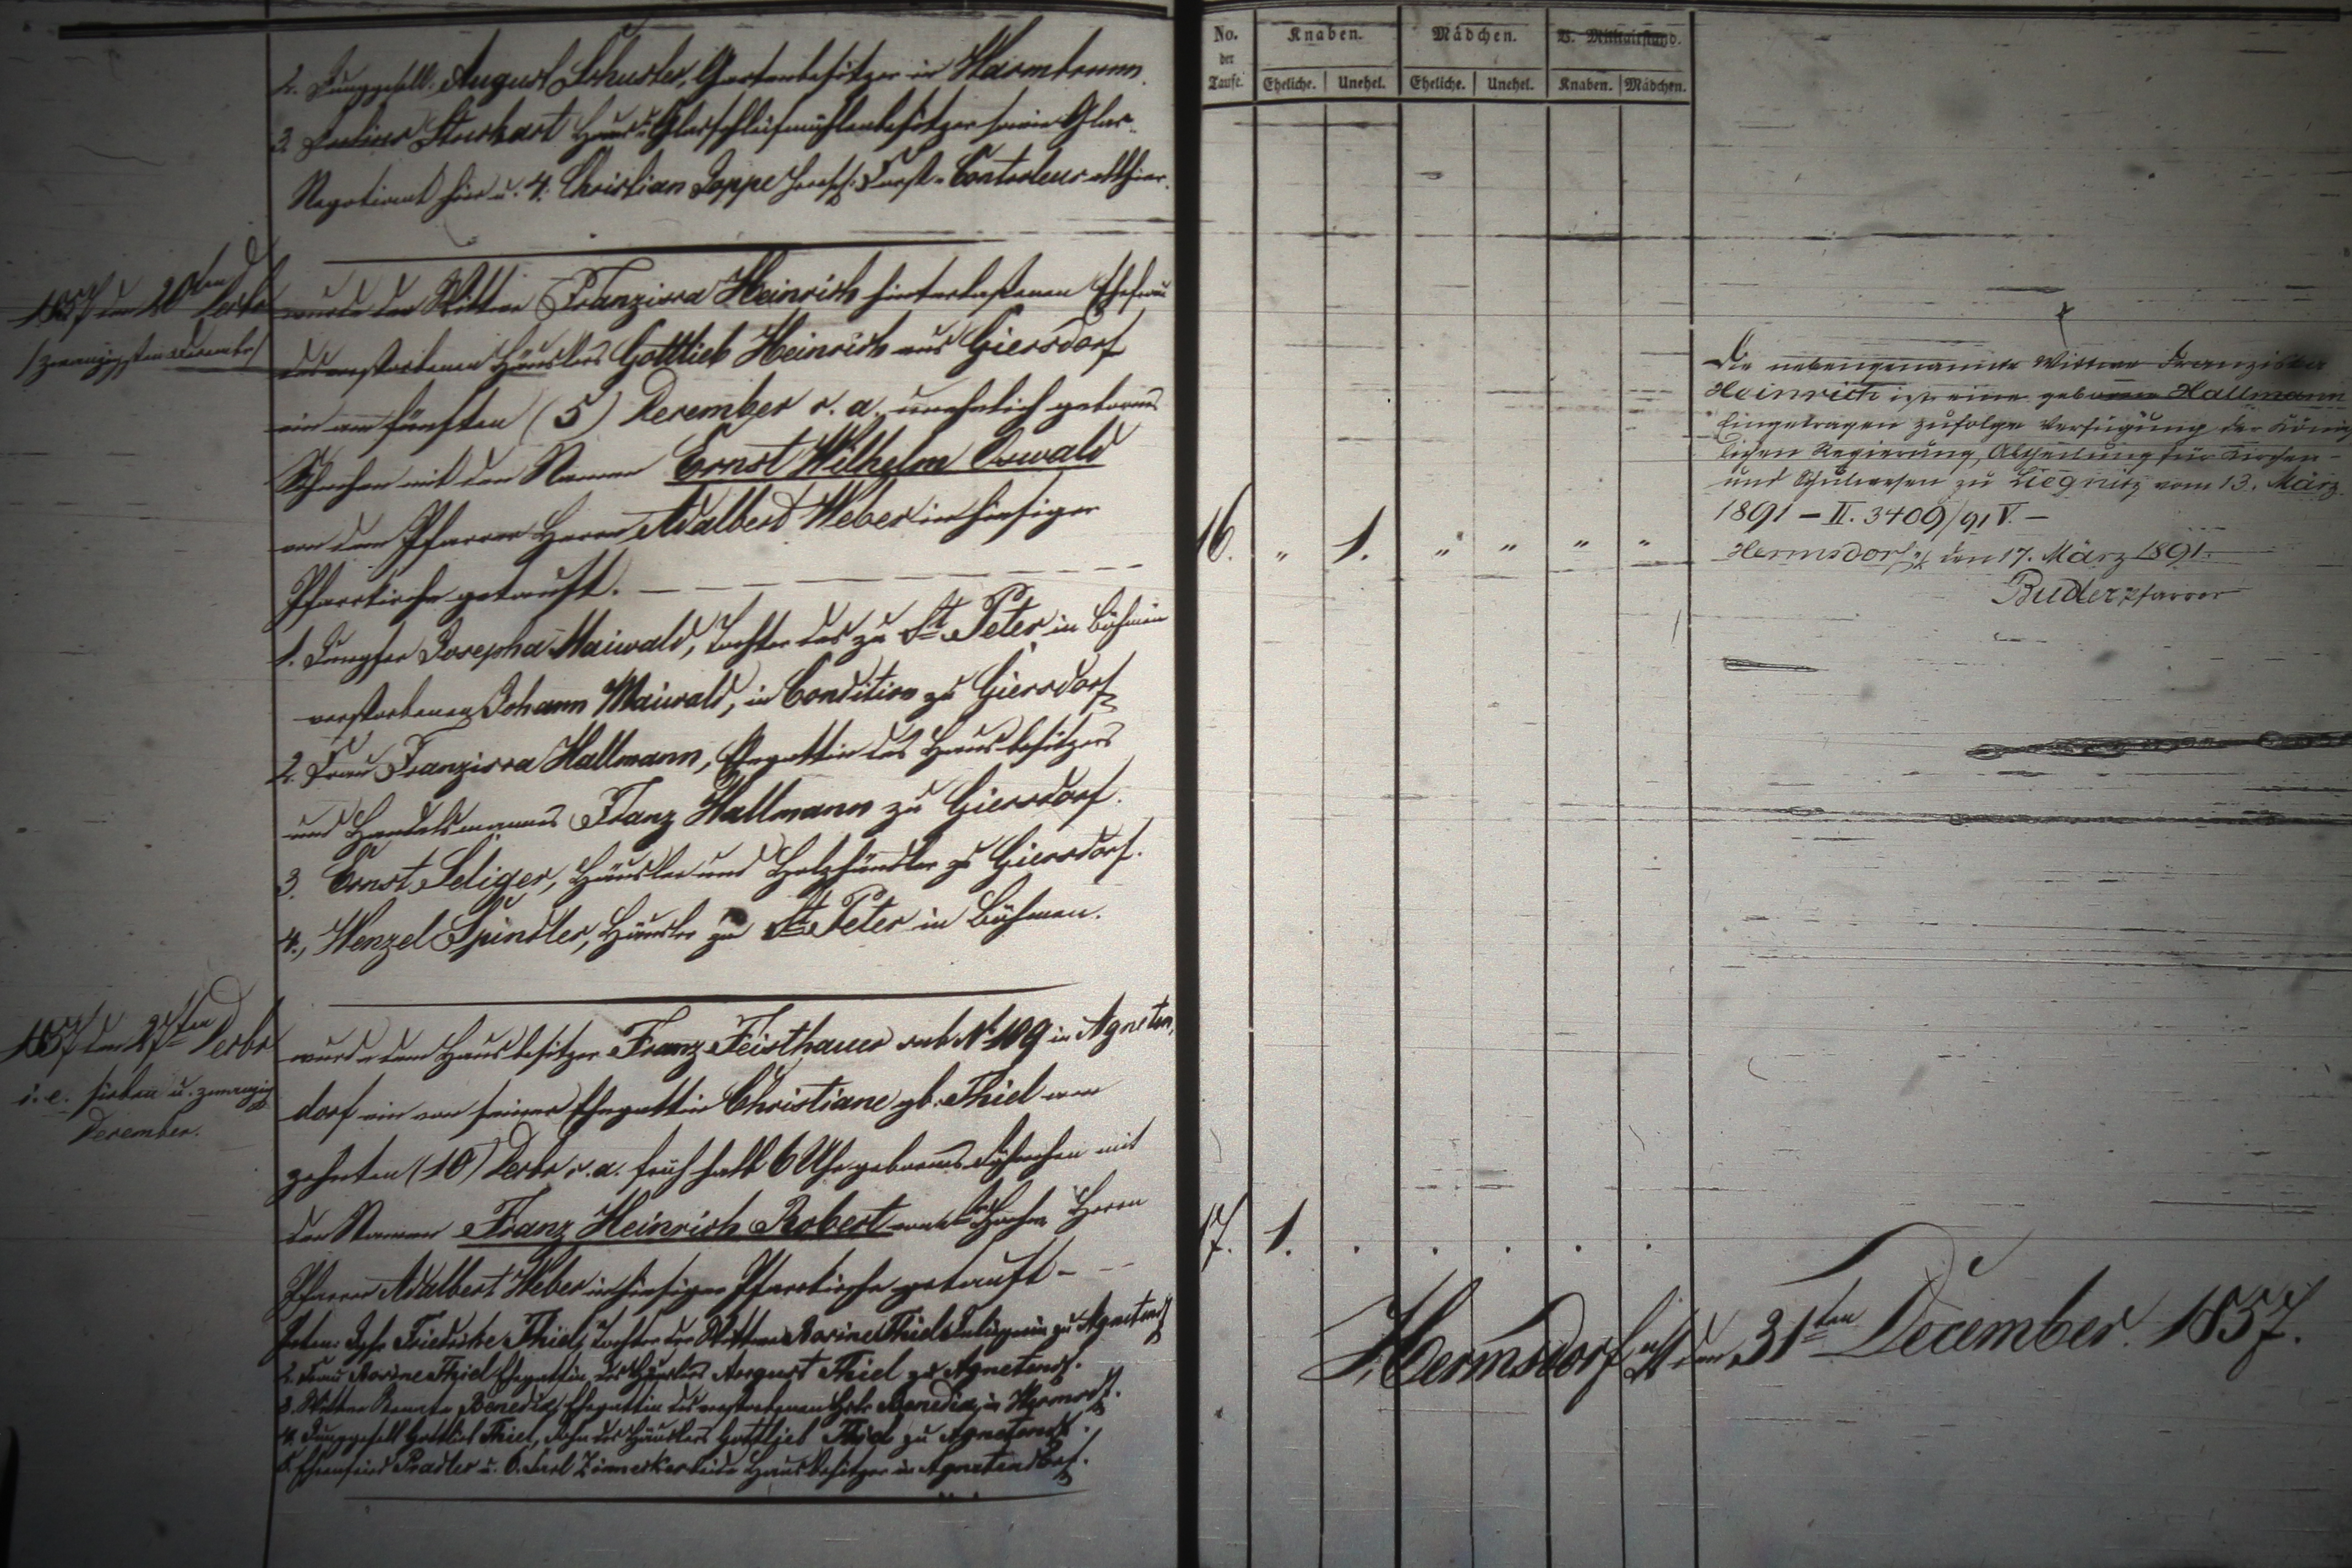 2. Junggesell. August Schuster, Gartenbesitzer in Warmbrunn.
3. Haus u. Glasschleifmühlenbesitzer sowie Glas-
Negotiant hier u. 4. Christian Poppe herrsch. Forst-Controleur allhier.
1857 den 20ten Decbr
/zwanzigsten December/
wurde der Wittwe Franzisca Heinrich hinterlaßenen Ehefrau
des verstorbenen Häuslers Gottlieb Heinrich aus Giersdorf
ein am fünften (5) December c. a. unehelich gebornes
Söhnchen mit den Namen Ernst Wilhelm Oswald
von dem Pfarrer Herrn Adalbert Weber in hiesiger
Pfarrkirche getauft.
1. Jungfer Josepha Maiwald, Tochter des zu St. Peter in Böhmen
verstorbenen Johann Maiwald, in Condition zu Giersdorf
2. Frau Franzisca Hallmann, Ehegattin des Hausbesitzers
und Handelsmannes Franz Hallmann zu Giersdorf.
3. Ernst Seliger, Häusler und Holzhändler zu Giersdorf.
4., Wenzel Spindler, Häusler zu St. Peter in Böhmen.
1857 den 27ten Decbr
i. e. sieben u. zwanzig
December.
wurde dem Hausbesitzer Franz Feisthauer sub No 109 in Agneten,
dorf ein von seiner Ehegattin Christiane gb. Thiel am
zehnten (10) Decbr c. a. früh halb 6 Uhr gebornes Söhnchen mit
den Namen Franz Heinrich Robert von Herrn
Pfarrer Adalbert Weber in hiesiger Pfarrkirche getauft -
Friedricke Thiel, Tochter der Wittwe Rosine Thiel zu Agnetendf
2. Frau Rosine Thiel Ehegattin des Häuslers August Thiel zu Agnetendf.
3. Wittwe Benedix, Ehegattin des verstorbenen Benedix, in Hermsdf.
4. Junggesell Gottlieb Thiel, Sohn des Häuslers Gottlieb Thiel zu Agnetendf.
5. Ehrenfried Pradler u. 6. Carl beide Hausbesitzer in Agnetendorf.
No. der Taufe.
Knaben.
Mädchen.
V. Militairstand.
Eheliche. Unehel. Eheliche. Unehel. Knaben. Mädchen.
16. " 1. " " " "
Die nebengenannte Wittwe Franziska
Heinrich ist eine geborene Hallmann
Eingetragen zufolge Verfügung der König-
lichen Regierung, Abtheilung für Kirchen-
und Schulwesen zu Liegnitz vom 13. März
1891 - II. 3400/91 V. -
Hermsdorf u/K den 17. März 1891.
Buder Pfarrer
17. 1. . . . . .
Hermsdorf u/K den 31ten December 1857.